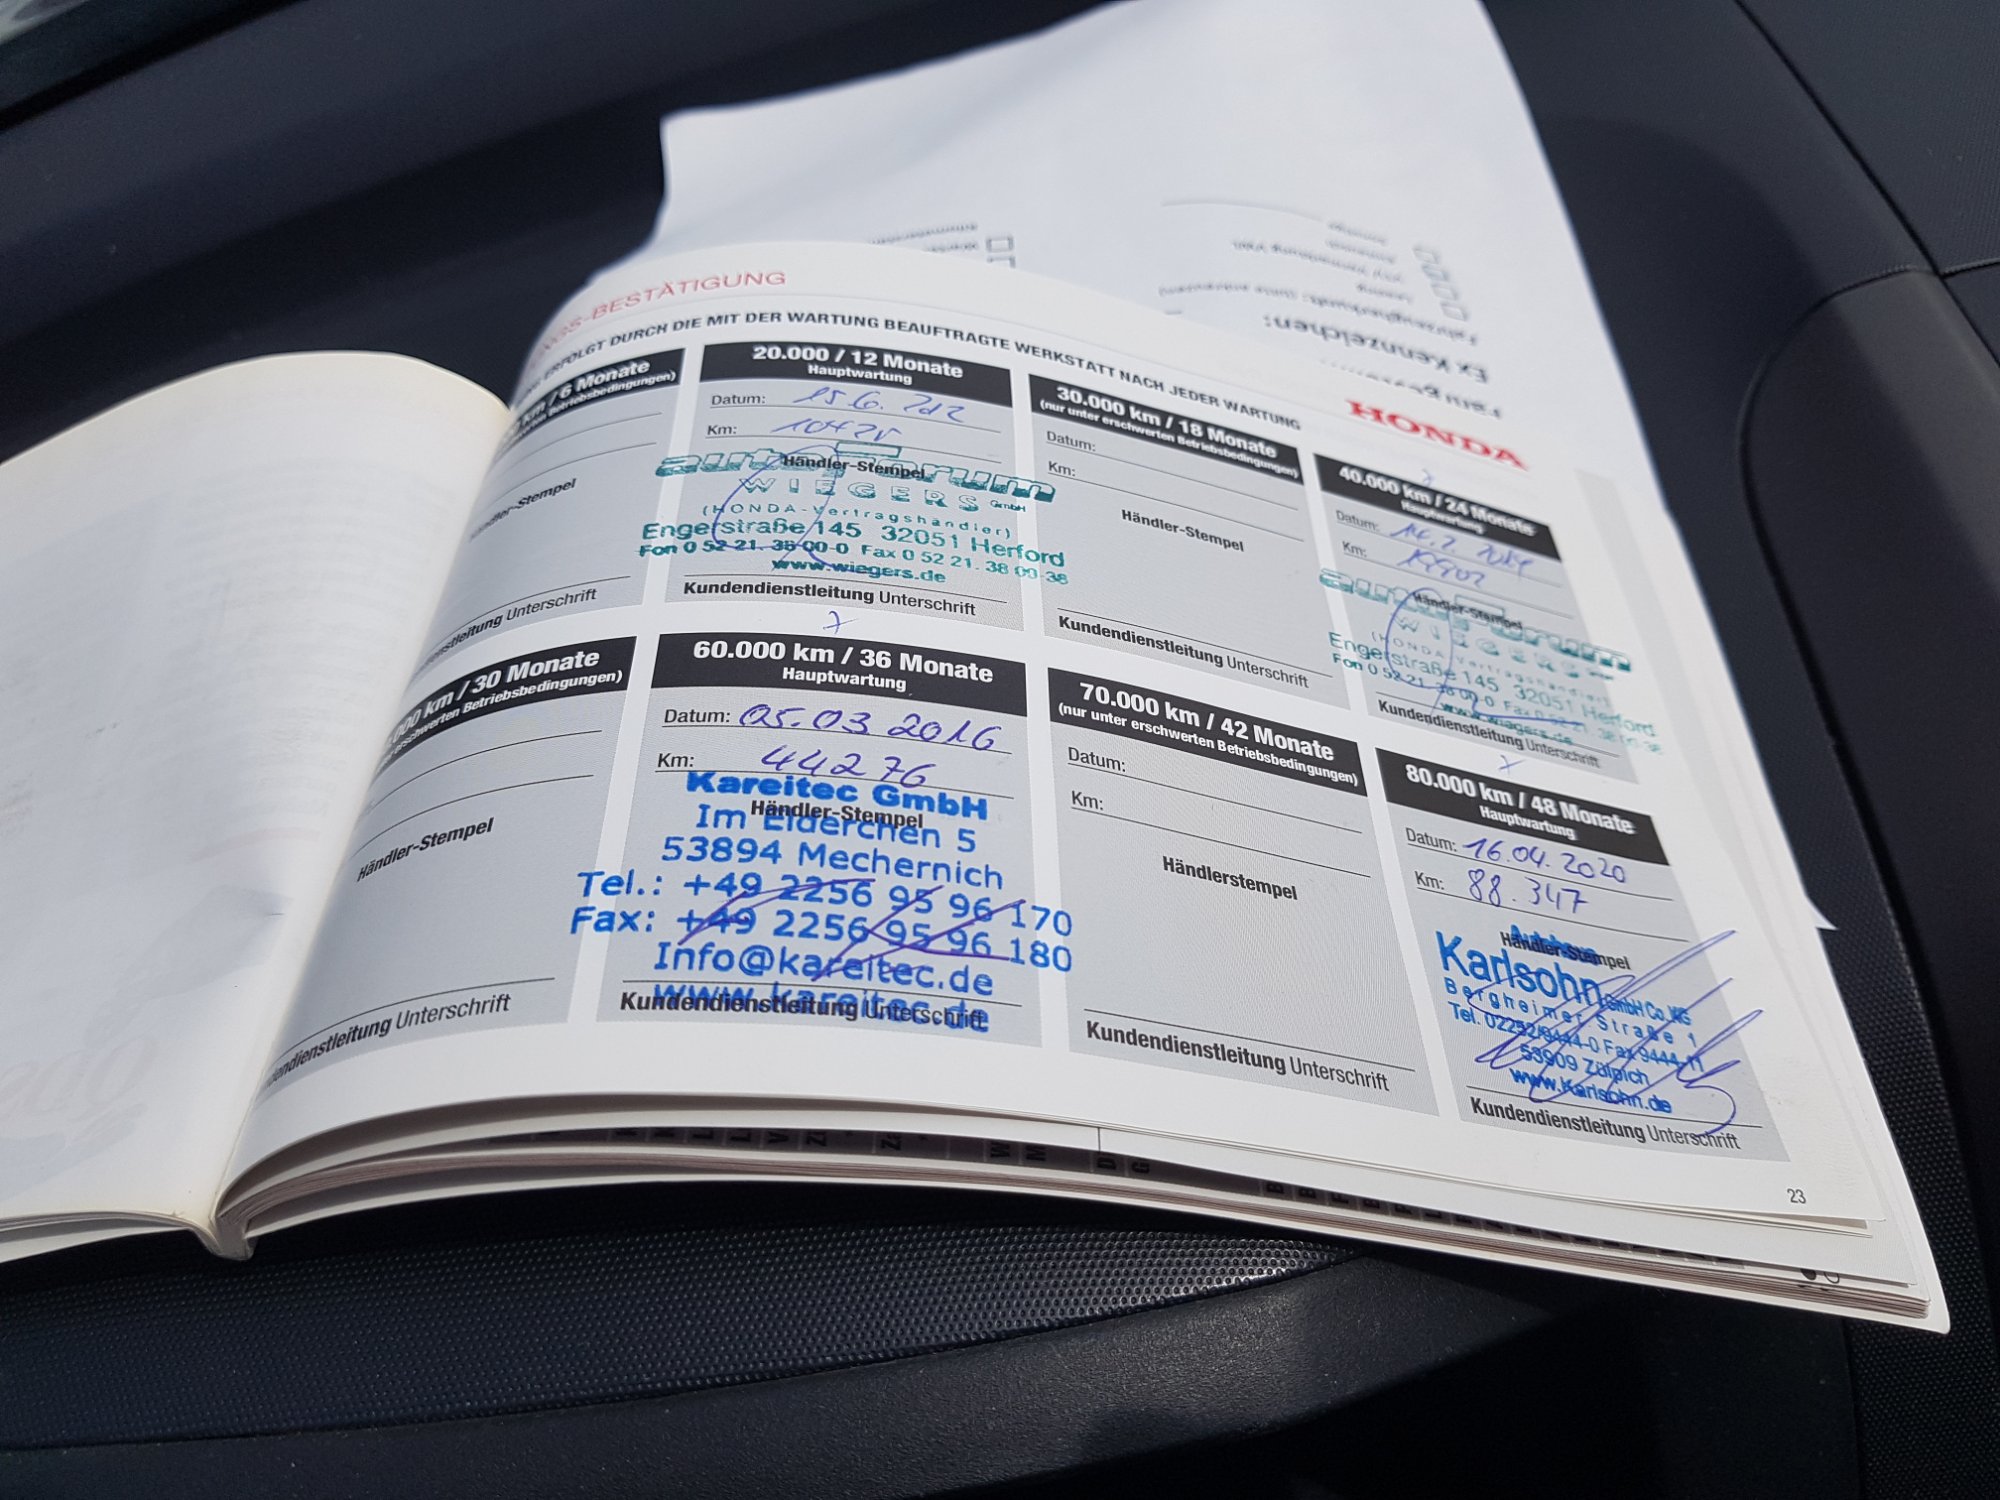 GS-BESTÄTIGUNG
ERFOLGT DURCH DIE MIT DER WARTUNG BEAUFTRAGTE WERKSTATT NACH JEDER WARTUNG
HONDA
km / 6 Monate
Betriebsbedingungen)
Händler-Stempel
Unterschrift
20.000 / 12 Monate
Hauptwartung
Datum:
Km:
Händler-Stempel
autoForum
WIEGERS GmbH
(HONDA-Vertragshändler)
Engerstraße 145 32051 Herford
Fon 0 52 21. 38 00-0 Fax 0 52 21. 38 00-38
www.wiegers.de
Kundendienstleitung Unterschrift
30.000 km / 18 Monate
(nur unter erschwerten Betriebsbedingungen)
Datum:
Km:
Händler-Stempel
Kundendienstleitung Unterschrift
40.000 km / 24 Monate
Hauptwartung
Datum:
Km:
Händler-Stempel
autoForum
WIEGERS
Engerstraße 145 32051 Herford
www.wiegers.de
Kundendienstleitung Unterschrift
km / 30 Monate
erschwerten Betriebsbedingungen)
Händler-Stempel
Unterschrift
60.000 km / 36 Monate
Hauptwartung
Datum: 05.03.2016
Km: 44276
Kareitec GmbH
Händler-Stempel
Im Elderchen 5
53894 Mechernich
Tel.: +49 2256 95 96 170
Fax: +49 2256 95 96 180
Info@kareitec.de
www.kareitec.de
Kundendienstleitung Unterschrift
70.000 km / 42 Monate
(nur unter erschwerten Betriebsbedingungen)
Datum:
Km:
Händlerstempel
Kundendienstleitung Unterschrift
80.000 km / 48 Monate
Hauptwartung
Datum: 16.04.2020
Km: 88.347
Autohaus
Händler-Stempel
Karlsohn GmbH Co. KG
Bergheimer Straße 1
Tel. 02252/9444-0 Fax 9444-11
53909 Zülpich
www.Karlsohn.de
Kundendienstleitung Unterschrift
23
Ex Kennzeichen: